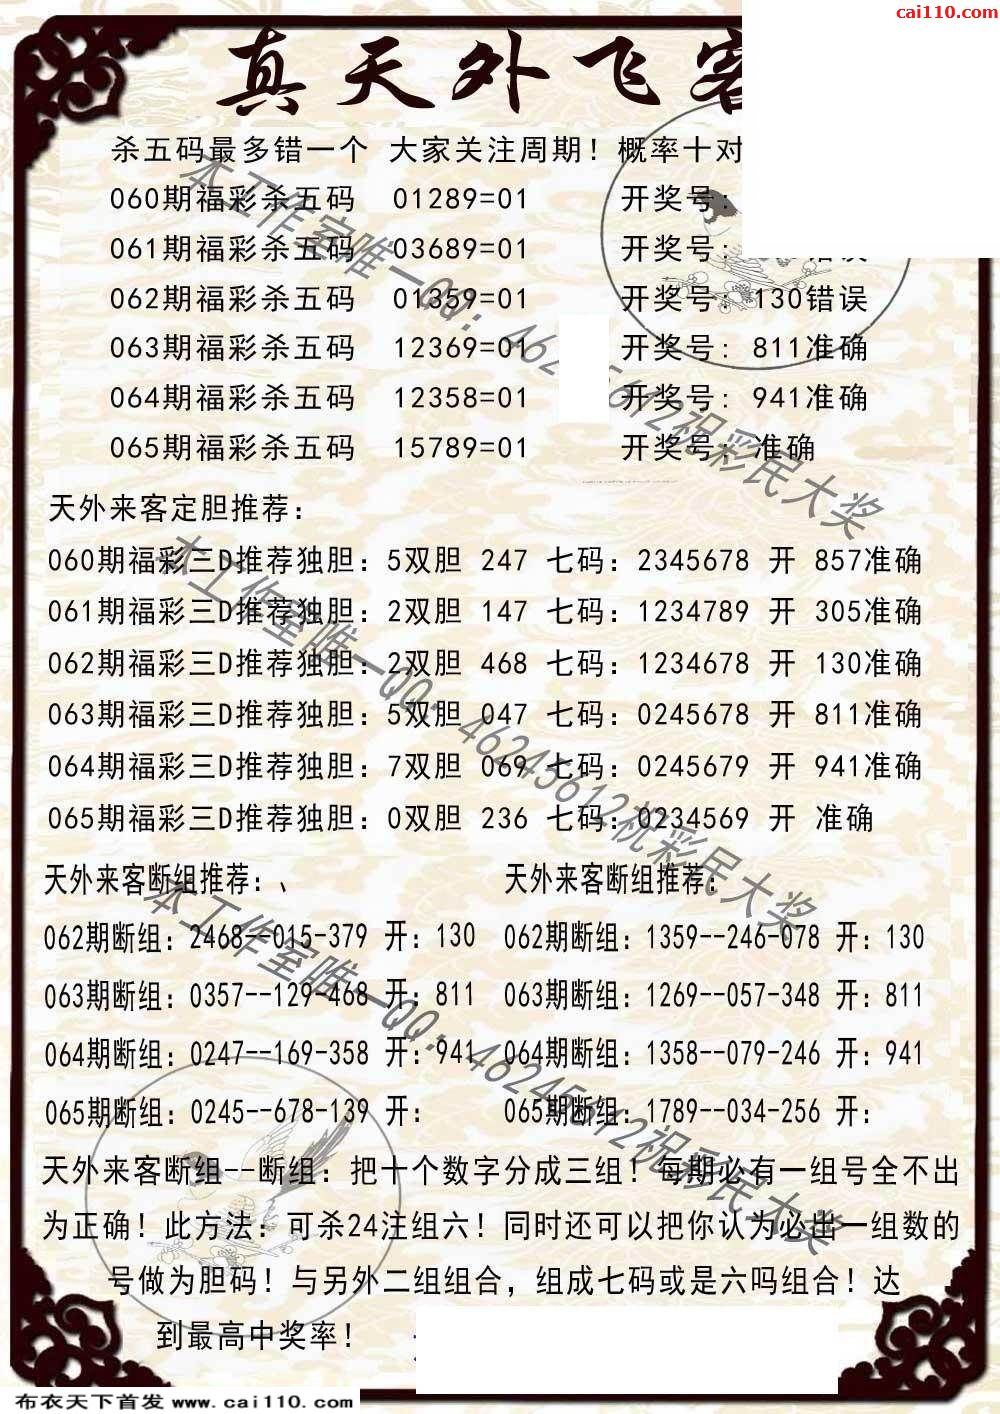 cai110.com
真天外飞客
杀五码最多错一个 大家关注周期！概率十对
060期福彩杀五码 01289=01 开奖号：
061期福彩杀五码 03689=01 开奖号： 错误
062期福彩杀五码 01359=01 开奖号：130错误
063期福彩杀五码 12369=01 开奖号：811准确
064期福彩杀五码 12358=01 开奖号：941准确
065期福彩杀五码 15789=01 开奖号：准确
天外来客定胆推荐：
060期福彩三D推荐独胆：5双胆 247 七码：2345678 开 857准确
061期福彩三D推荐独胆：2双胆 147 七码：1234789 开 305准确
062期福彩三D推荐独胆：2双胆 468 七码：1234678 开 130准确
063期福彩三D推荐独胆：5双胆 047 七码：0245678 开 811准确
064期福彩三D推荐独胆：7双胆 069 七码：0245679 开 941准确
065期福彩三D推荐独胆：0双胆 236 七码：0234569 开 准确
天外来客断组推荐：、 天外来客断组推荐：
062期断组：2468--015-379 开：130 062期断组：1359--246-078 开：130
063期断组：0357--129-468 开：811 063期断组：1269--057-348 开：811
064期断组：0247--169-358 开：941 064期断组：1358--079-246 开：941
065期断组：0245--678-139 开： 065期断组：1789--034-256 开：
天外来客断组--断组：把十个数字分成三组！每期必有一组号全不出
为正确！此方法：可杀24注组六！同时还可以把你认为必出一组数的
号做为胆码！与另外二组组合，组成七码或是六吗组合！达
到最高中奖率！
本工作室唯一QQ：46245612祝彩民大奖
本工作室唯一QQ：46245612祝彩民大奖
本工作室唯一QQ：46245612祝彩民大奖
布衣天下首发 www.cai110.com